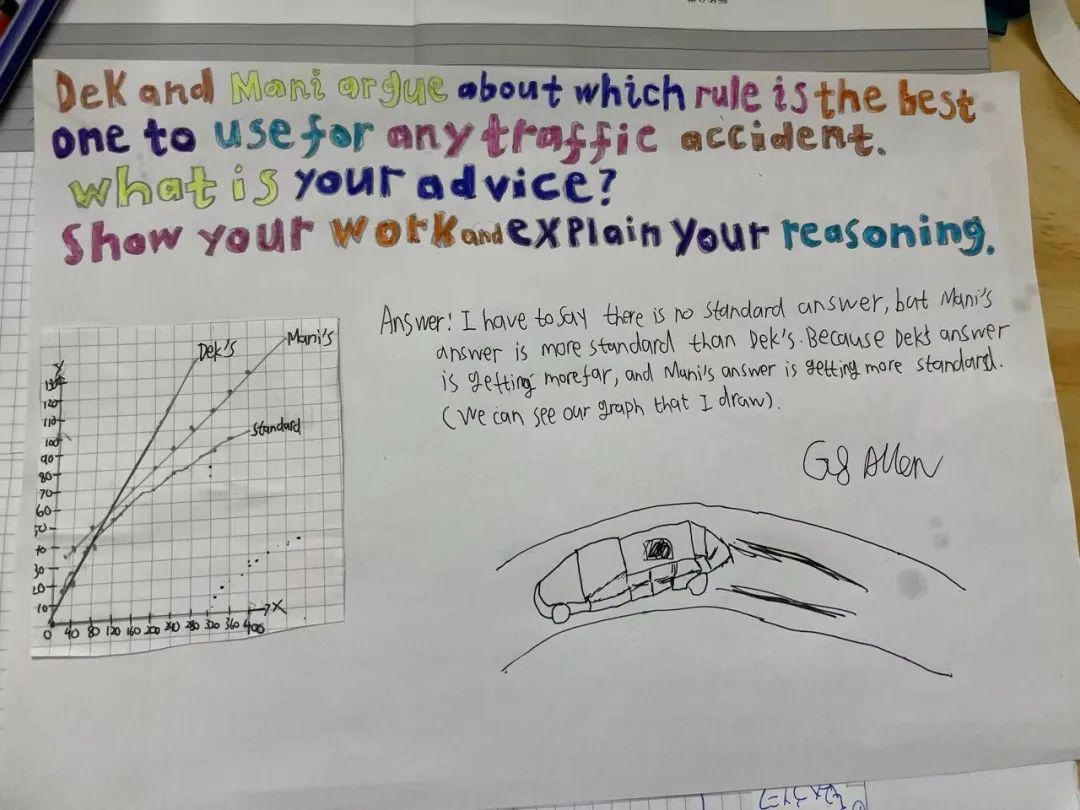 Dek and Mani argue about which rule is the best
one to use for any traffic accident.
What is your advice?
Show your work and explain your reasoning.
Answer: I have to say there is no standard answer, but Mani's
answer is more standard than Dek's. Because Dek's answer
is getting more far, and Mani's answer is getting more standard.
(We can see our graph that I draw).
G8 Allen
Dek's
Mani's
Standard
Y
130
120
110
100
90
80
70
60
50
40
30
20
10
0 40 80 120 160 200 240 280 320 360 400
X